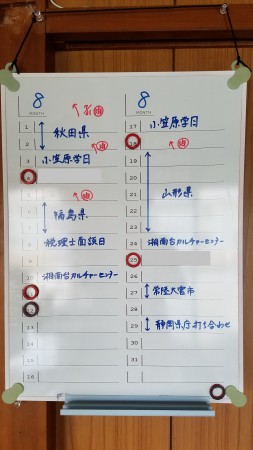 8
MONTH
1
2 秋田県
3 小笠原学日
5
6
7 福島県
8 税理士面談日
9
10 湘南台カルチャーセンター
13
14
15
16
8
MONTH
17 小笠原学日
18
19
20
21 山形県
22
23
24 湘南台カルチャーセンター
25
26
27 常陸大宮市
28
29 静岡県庁打ち合わせ
30
31